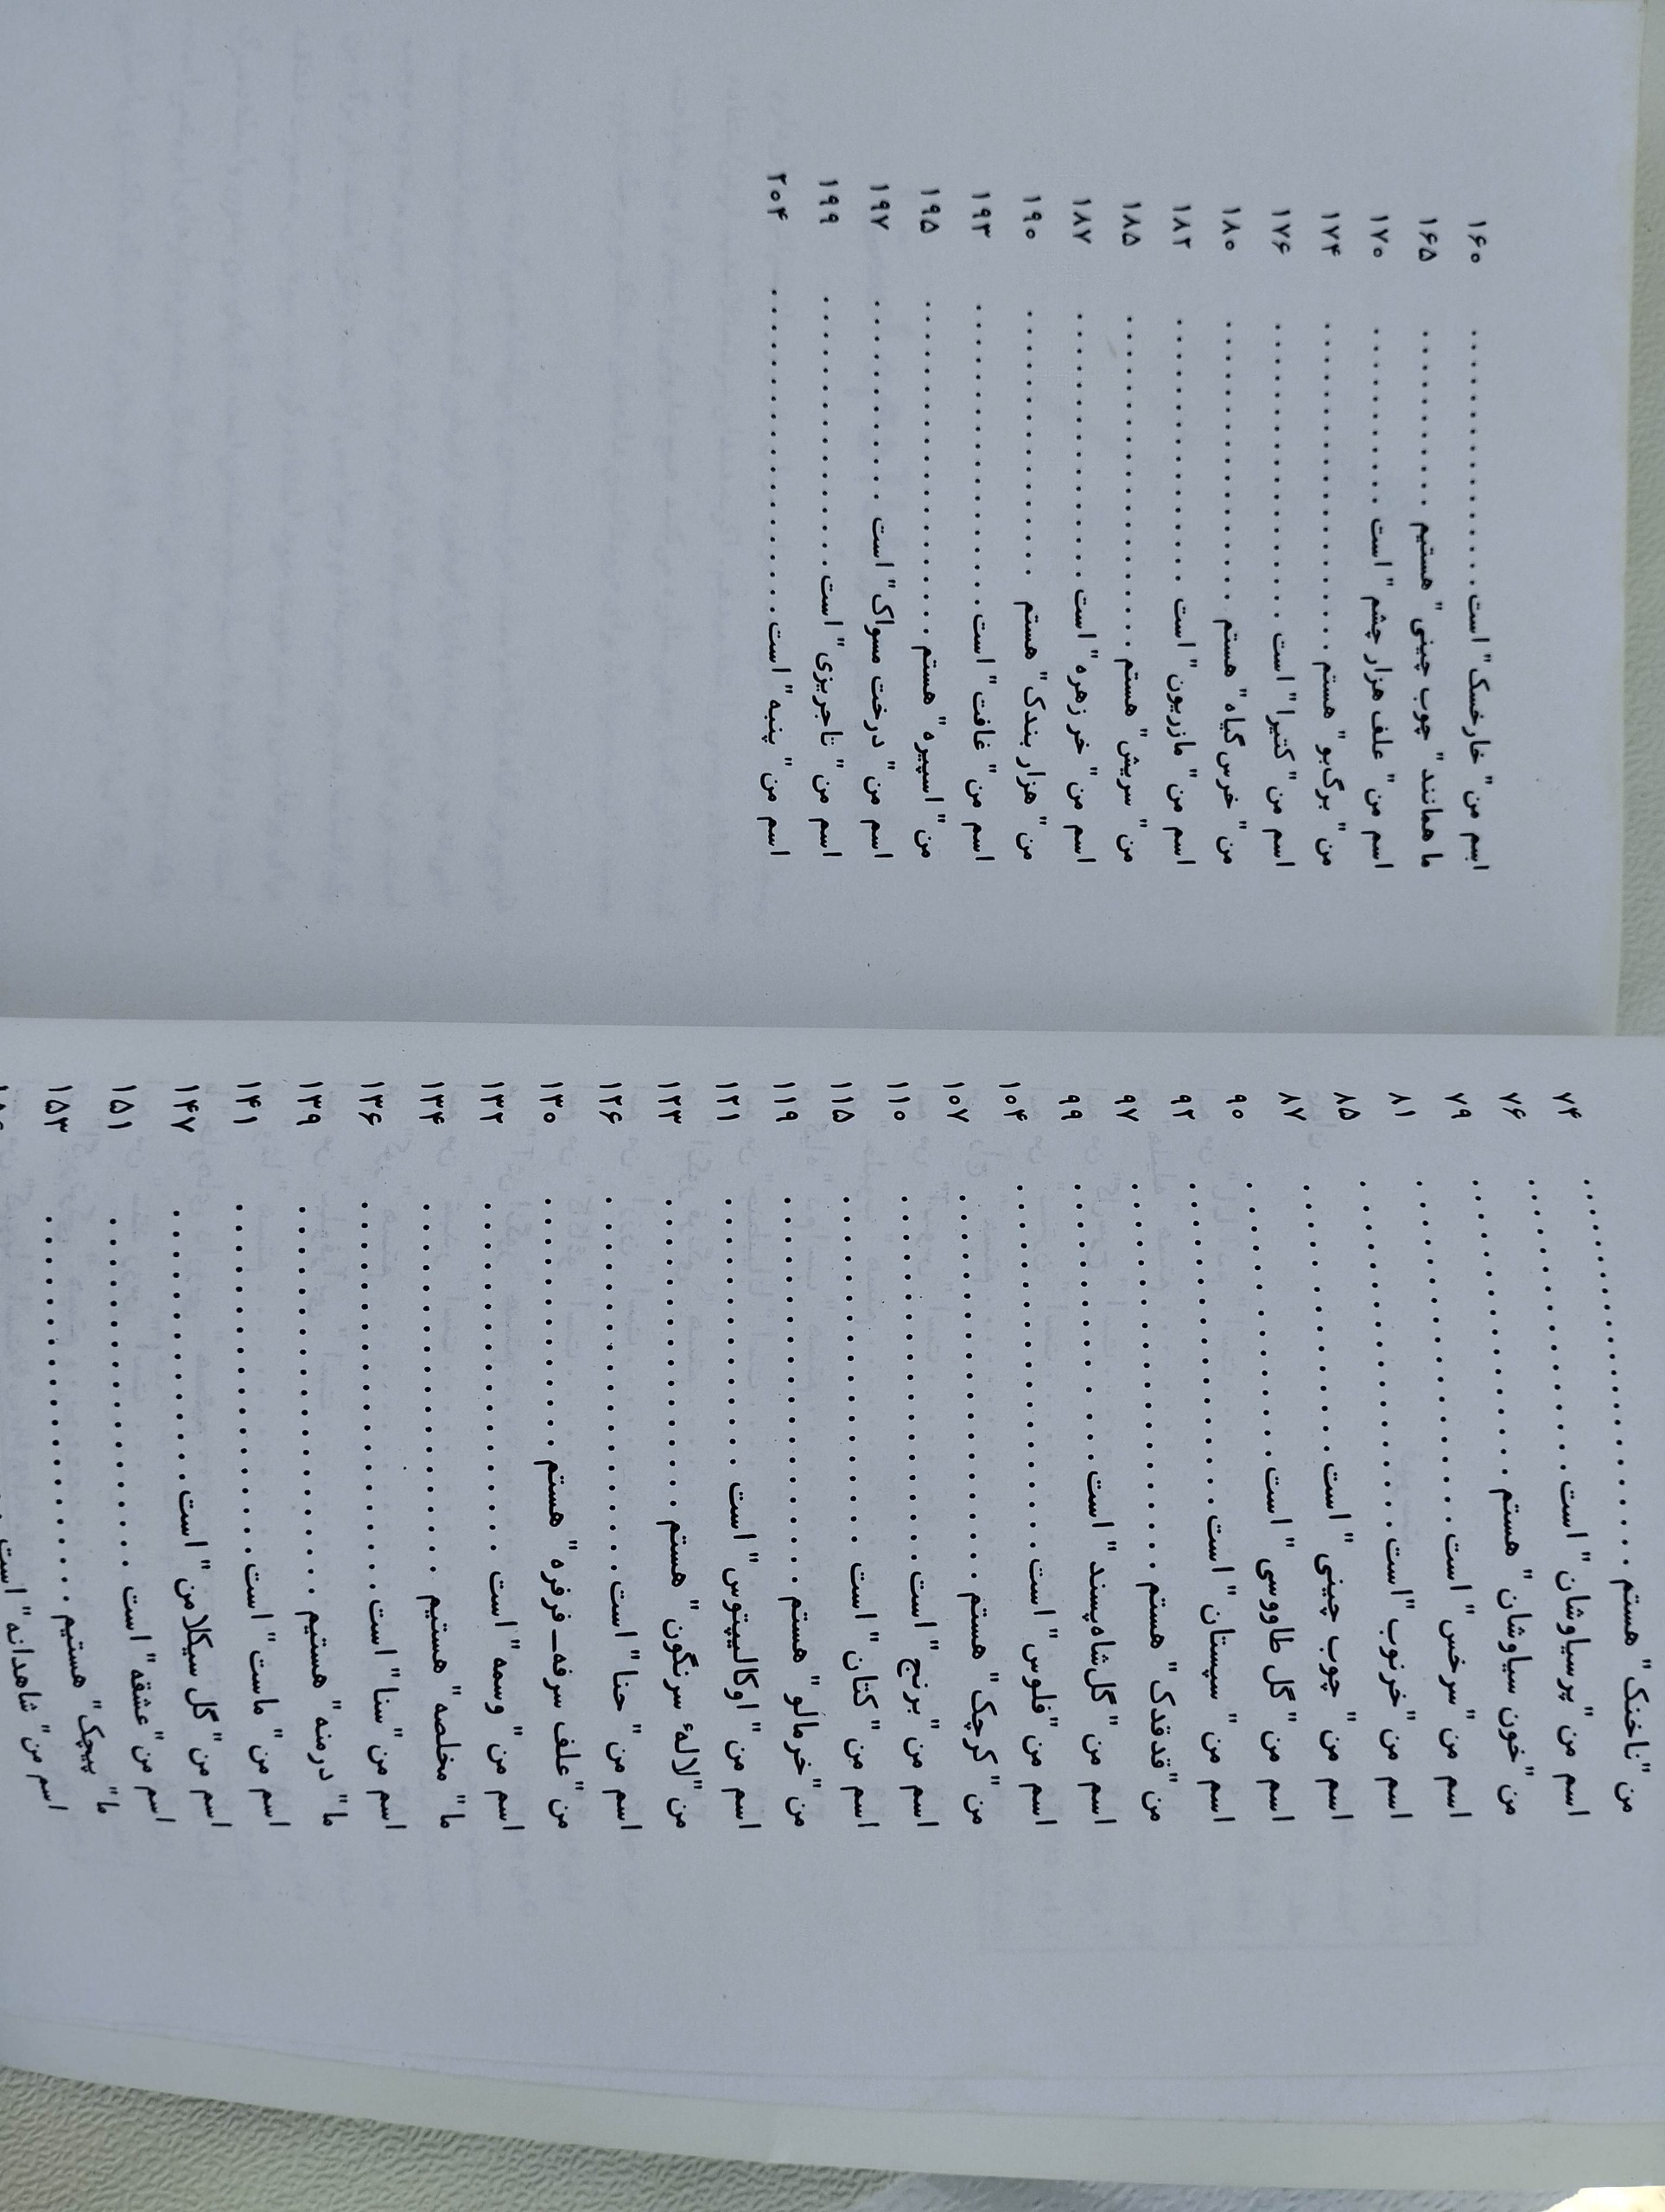 من "ناخنک" هستم . . . . . . . . . . ۷۴
اسم من "پرسیاوشان" است . . . . . . . . . . ۷۶
من "خون سیاوشان" هستم . . . . . . . . . . ۷۹
اسم من "سرخس" است . . . . . . . . . . ۸۱
اسم من "خرنوب" است . . . . . . . . . . ۸۵
اسم من "چوب چینی" است . . . . . . . . . . ۸۷
اسم من "گل طاووسی" است . . . . . . . . . . ۹۰
اسم من "سپستان" است . . . . . . . . . . ۹۲
من "قدقدک" هستم . . . . . . . . . . ۹۷
اسم من "گل‌شاه‌پسند" است . . . . . . . . . . ۹۹
اسم من "فلوس" است . . . . . . . . . . ۱۰۴
من "کرچک" هستم . . . . . . . . . . ۱۰۷
اسم من "برنج" است . . . . . . . . . . ۱۱۰
اسم من "کتان" است . . . . . . . . . . ۱۱۵
من "خرمالو" هستم . . . . . . . . . . ۱۱۹
اسم من "اوکالیپتوس" است . . . . . . . . . . ۱۲۱
من "لالهٔ سرنگون" هستم . . . . . . . . . . ۱۲۳
اسم من "حنا" است . . . . . . . . . . ۱۲۶
من "علف سرفه‌ـ فرفره" هستم . . . . . . . . . . ۱۳۰
اسم من "وسمه" است . . . . . . . . . . ۱۳۲
ما "مخلصه" هستیم . . . . . . . . . . ۱۳۴
اسم من "سنا" است . . . . . . . . . . ۱۳۶
ما "درمنه" هستیم . . . . . . . . . . ۱۳۹
اسم من "ماست" است . . . . . . . . . . ۱۴۱
اسم من "گل سیکلامن" است . . . . . . . . . . ۱۴۷
اسم من "عشقه" است . . . . . . . . . . ۱۵۱
ما "پیچک" هستیم . . . . . . . . . . ۱۵۳
اسم من "شاهدانه" است
اسم من "خارخسک" است . . . . . . . . . . ۱۶۰
ما همانند "چوب چینی" هستیم . . . . . . . . . . ۱۶۵
اسم من "علف هزار چشم" است . . . . . . . . . . ۱۷۰
من "برگ‌بو" هستم . . . . . . . . . . ۱۷۴
اسم من "کتیرا" است . . . . . . . . . . ۱۷۶
من "خرس گیاه" هستم . . . . . . . . . . ۱۸۰
اسم من "مازریون" است . . . . . . . . . . ۱۸۲
من "سریش" هستم . . . . . . . . . . ۱۸۵
اسم من "خر زهره" است . . . . . . . . . . ۱۸۷
من "هزار بندک" هستم . . . . . . . . . . ۱۹۰
اسم من "غافت" است . . . . . . . . . . ۱۹۳
من "اسپیره" هستم . . . . . . . . . . ۱۹۵
اسم من "درخت مسواک" است . . . . . . . . . . ۱۹۷
اسم من "تاجریزی" است . . . . . . . . . . ۱۹۹
اسم من "پنبه" است . . . . . . . . . . ۲۰۴